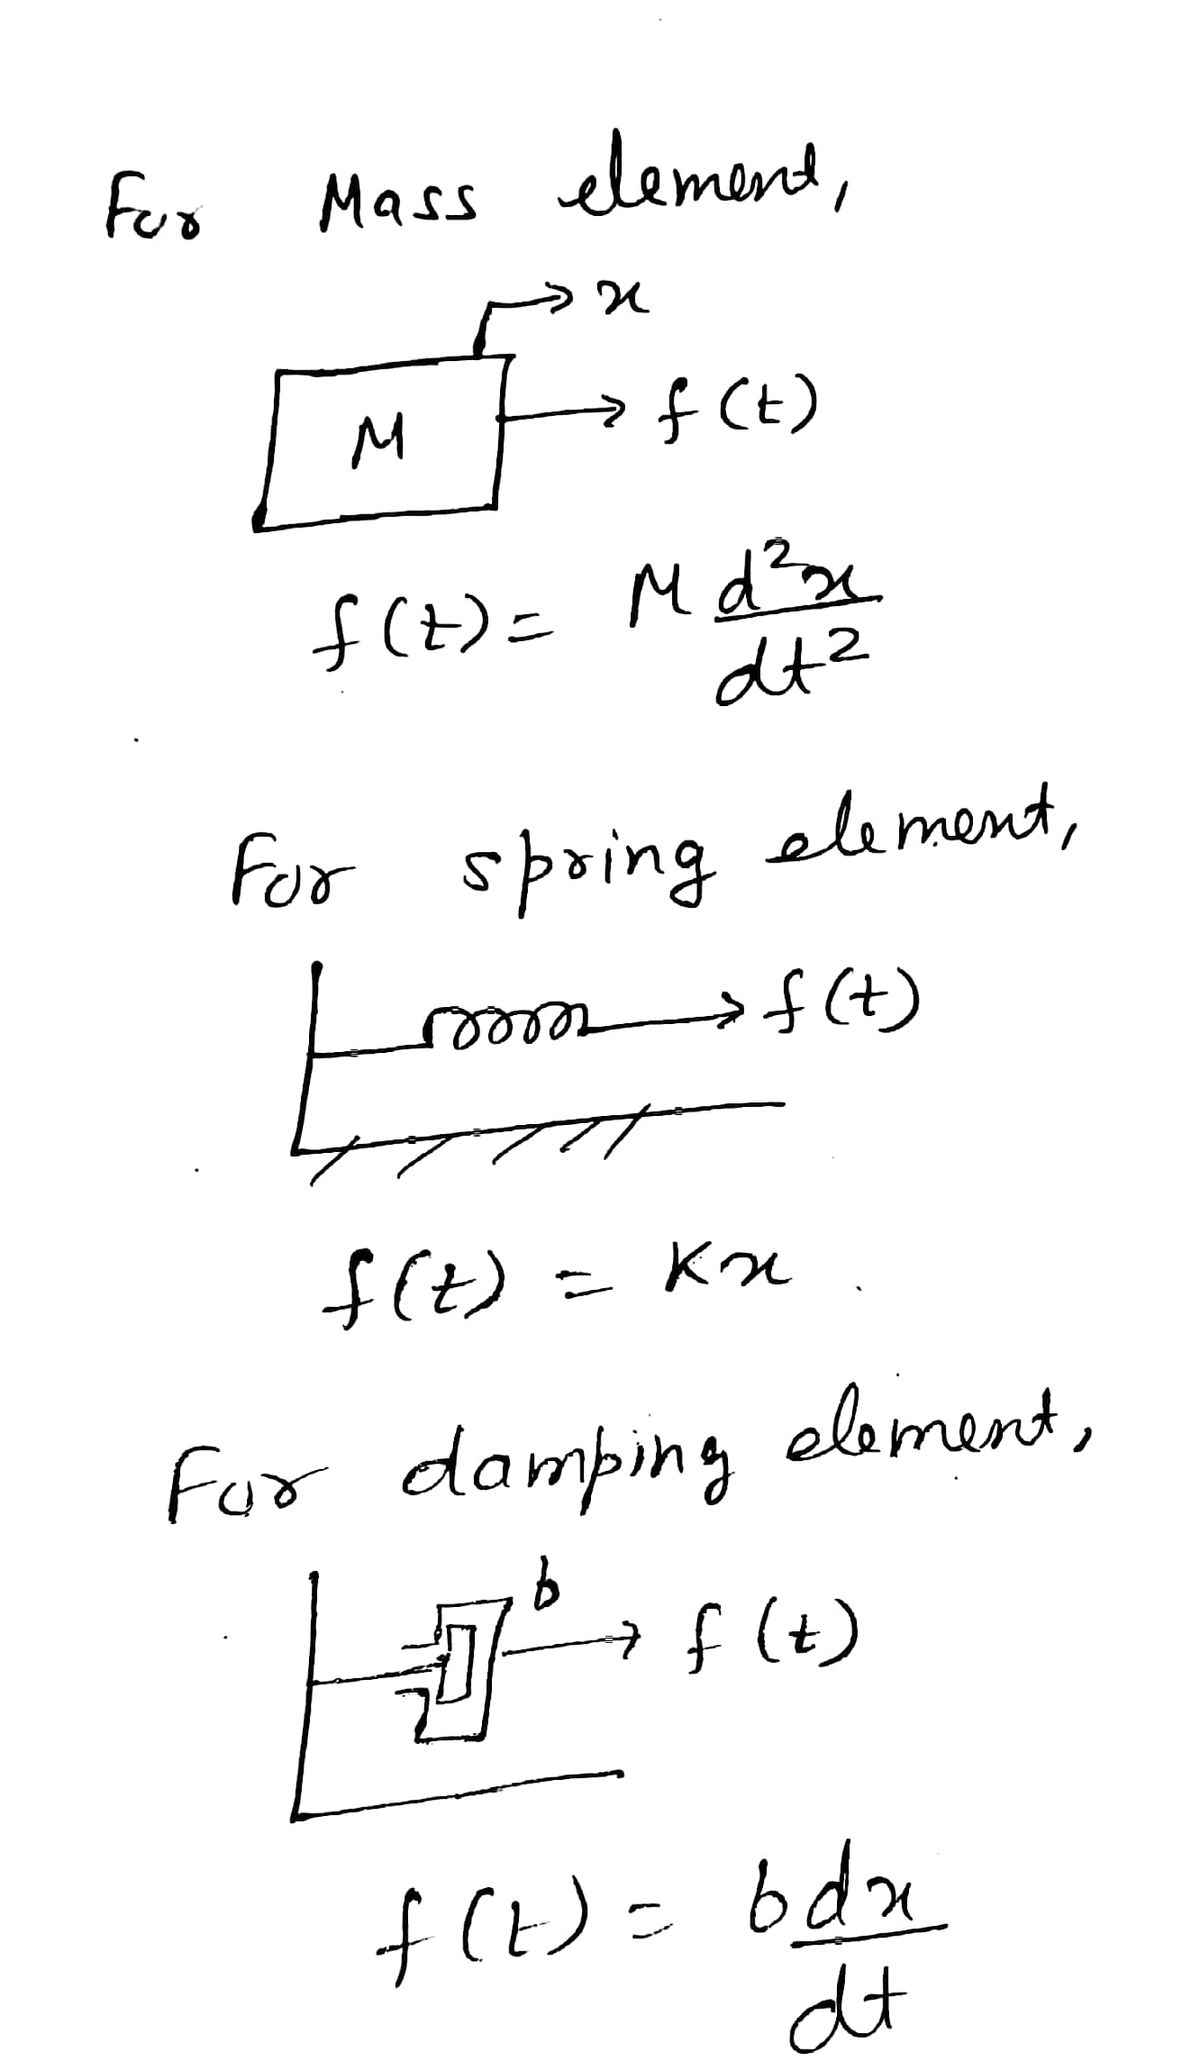 For Mass element,
x
M
f(t)
f(t) = M d²x/dt²
For spring element,
f(t)
f(t) = Kx
For damping element,
b
f(t)
f(t) = b dx/dt